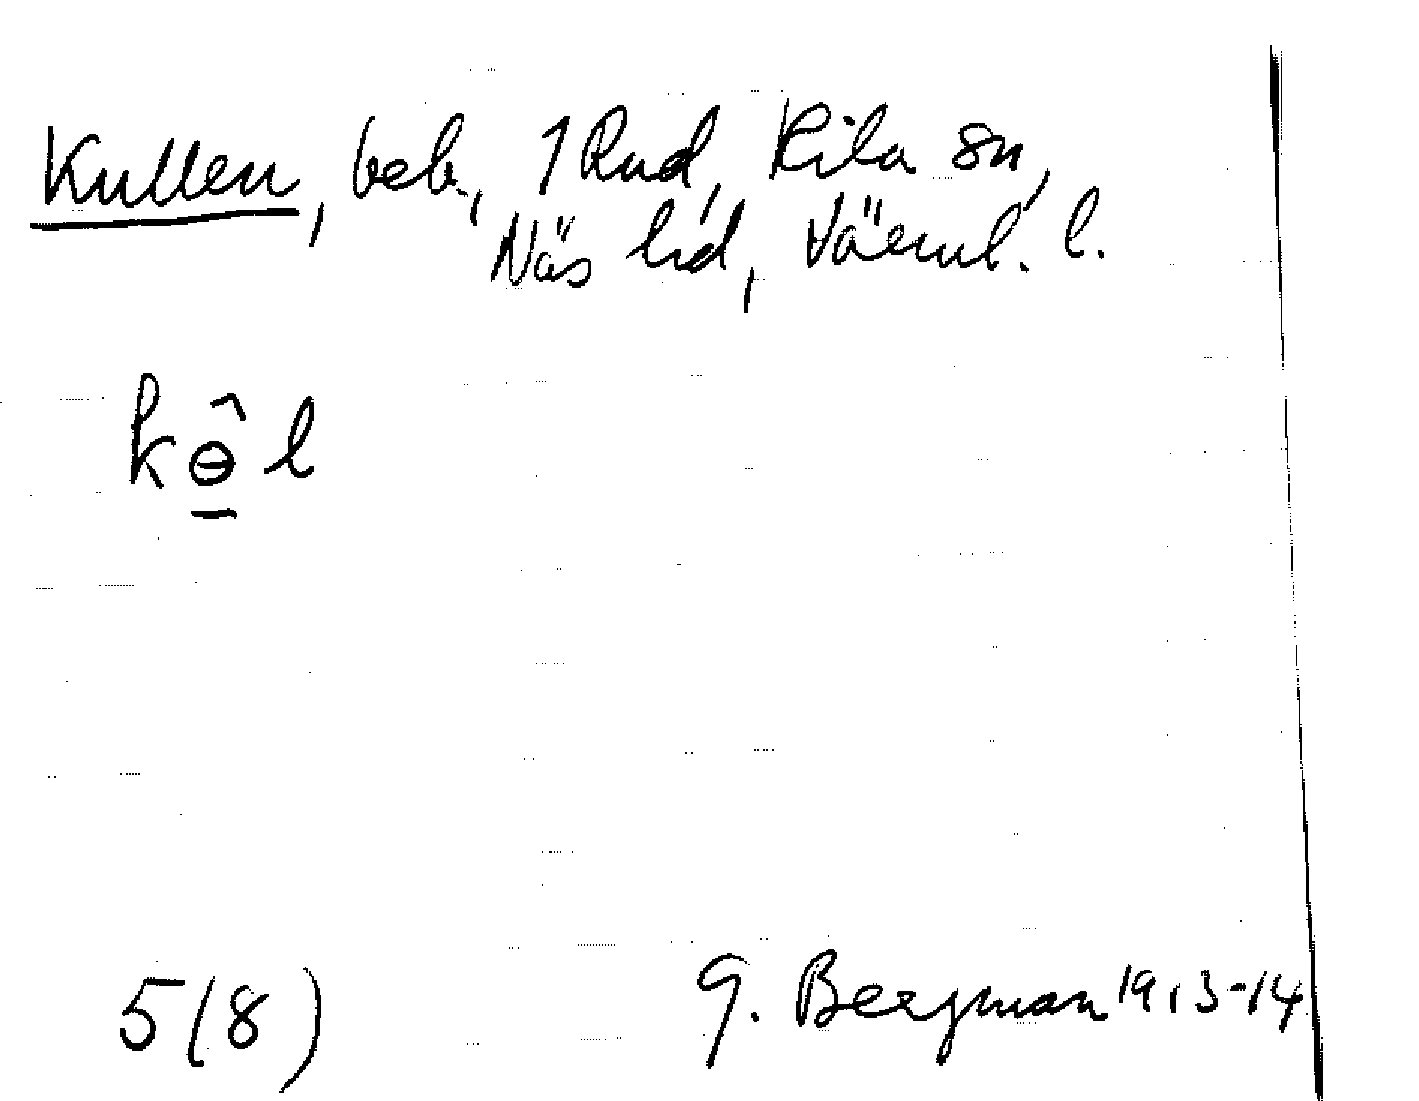 Kullen, beb., 1 Rud, Kila sn,
Näs hd, Värml. l.
kɵ̱̂l
5(8) G. Bergman 1913-14